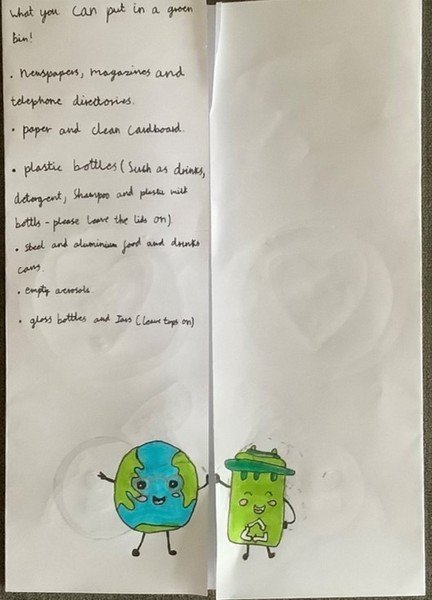 What you can put in a green
bin!
• Newspapers, magazines and
telephone directories.
• paper and clean cardboard.
• plastic bottles (Sush as drinks,
detergent, Shampoo and plastic milk
bottls - please leave the lids on)
• steel and aluminium food and drinks
cans.
• empty aerosols
• glass bottles and Jars (leave tops on)